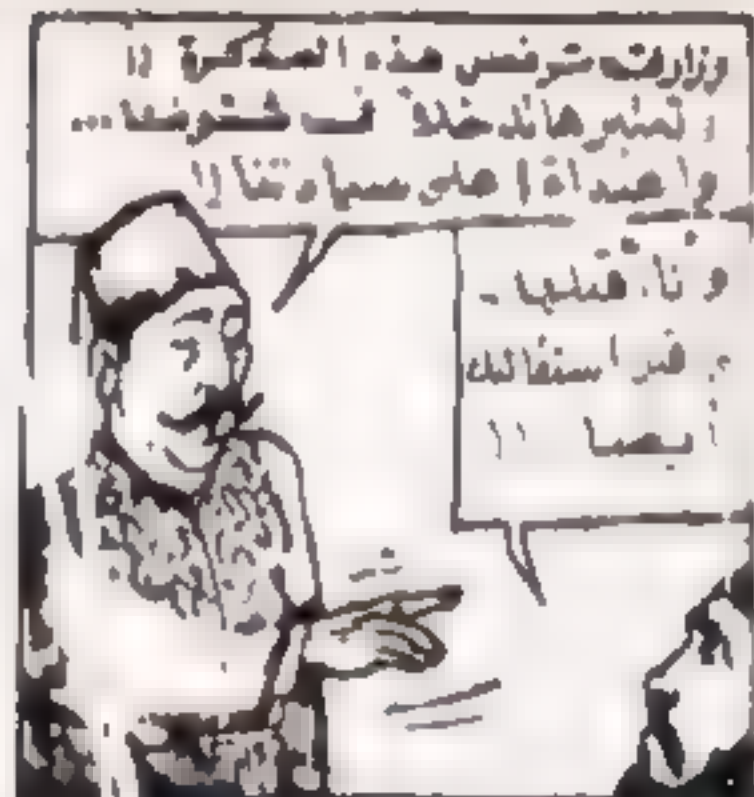 وزارت ترفس هذه المذكرة !!
تعتبرها تدخلا في شئونها...
واعتداءا على سيادتنا !!
وأنا قبلتها -
استقالتك
أيضا !!